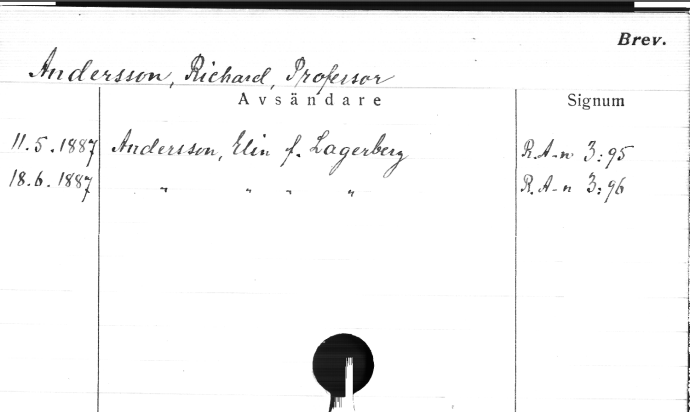 Brev.
Andersson, Richard, Professor
Avsändare Signum
11.5.1887 Andersson, Elin f. Lagerberg R.A-n 3:95
18.6.1887 " " " " R.A-n 3:96